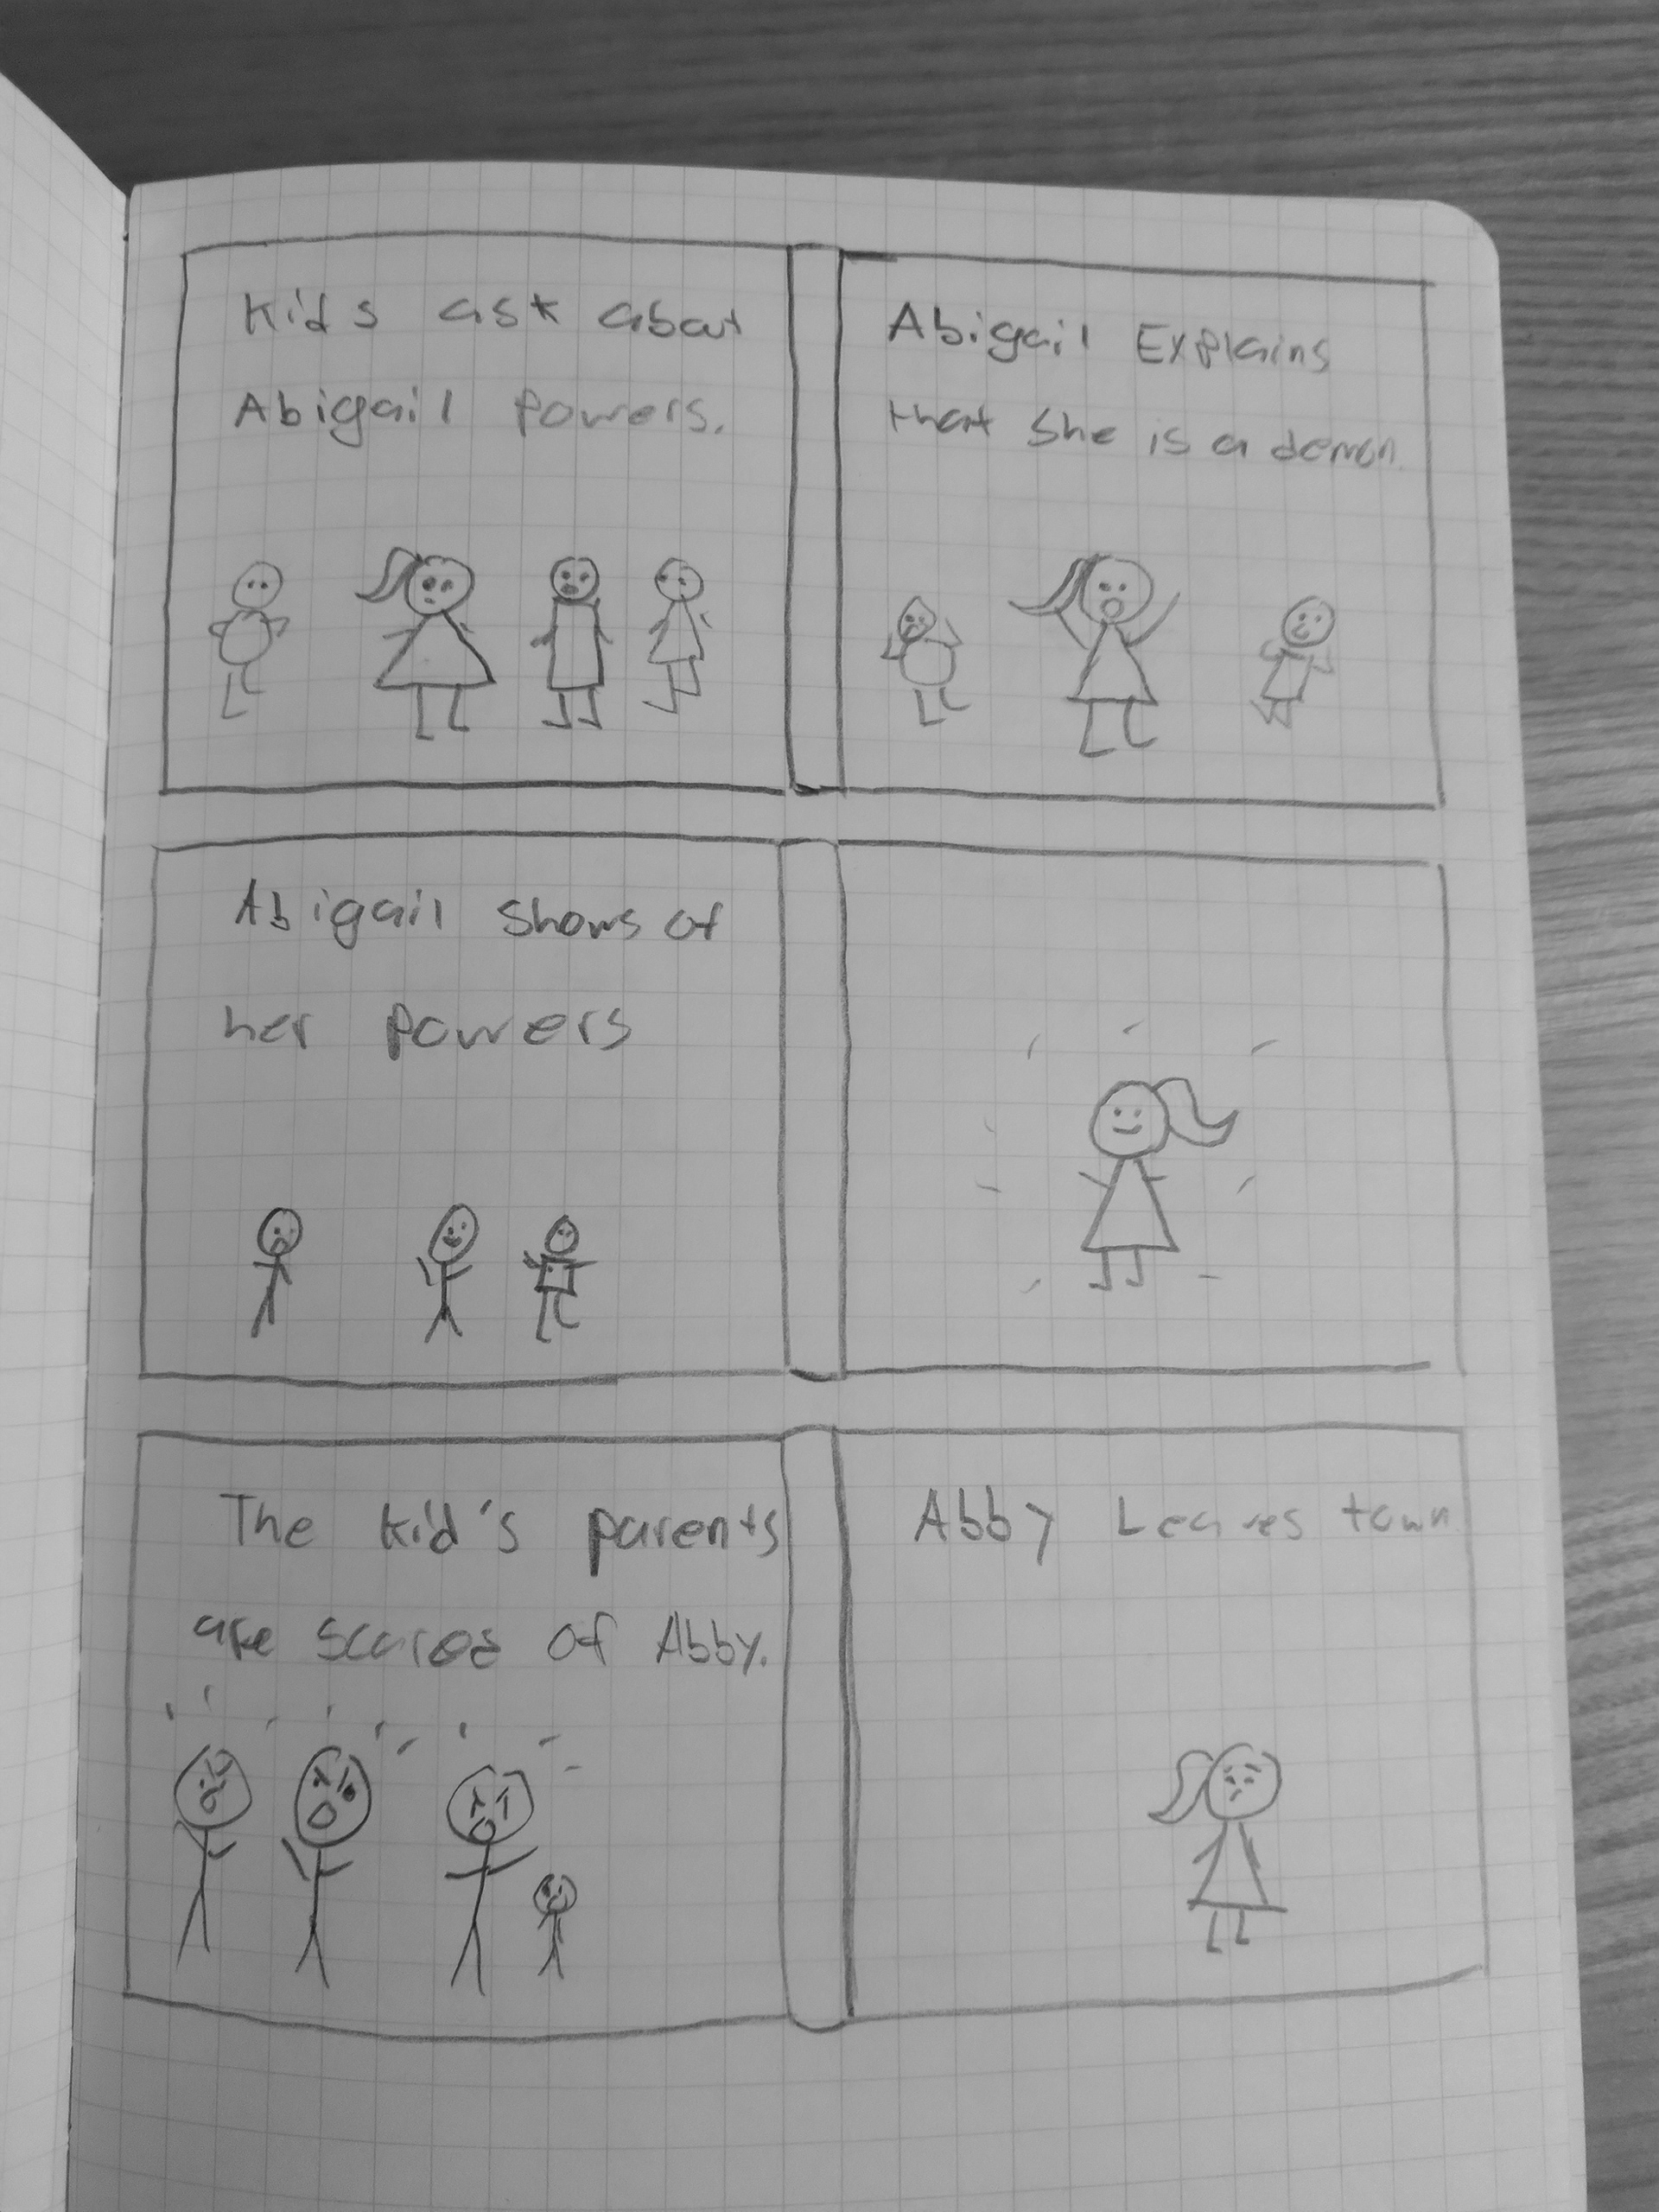 Kids ask about
Abigail powers.
Abigail Explains
that she is a demon
Abigail shows of
her powers
The kid's parents
are scared of Abby.
Abby Leaves town